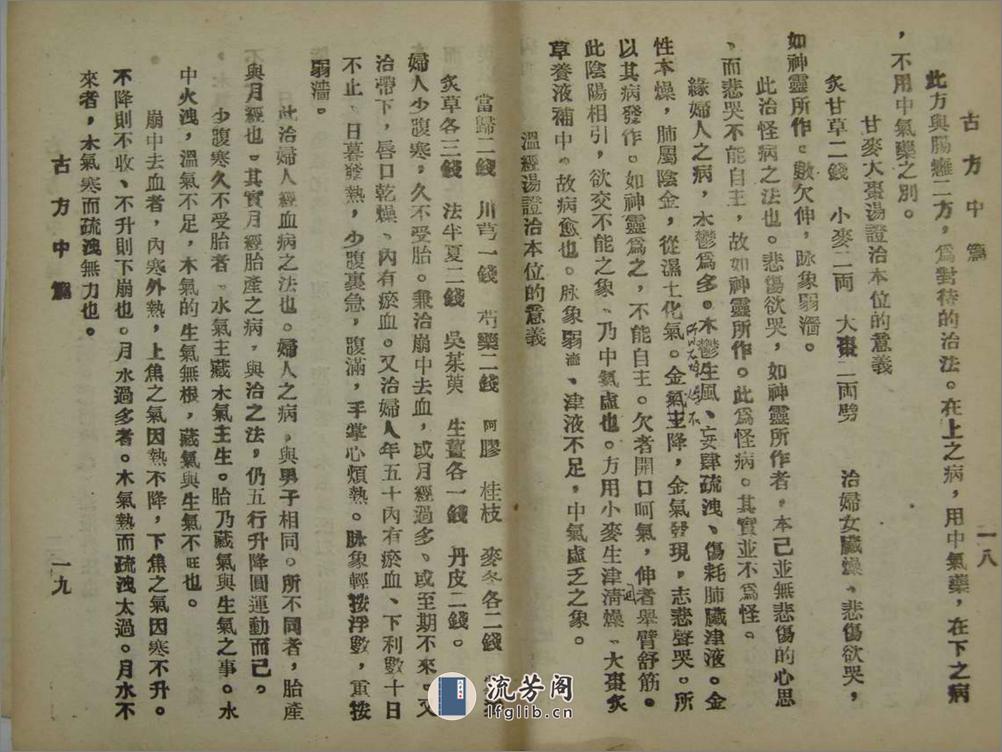 古方中篇
一八
此方與腸癰二方，爲對待的治法。在上之病，用中氣藥，在下之病
，不用中氣藥之別。
甘麥大棗湯證治本位的意義
炙甘草二錢　小麥二両　大棗二両劈　治婦女臟燥、悲傷欲哭，
如神靈所作。數欠伸，脉象弱濇。
此治怪病之法也。悲傷欲哭，如神靈所作者，本己並無悲傷的心思
、而悲哭不能自主，故如神靈所作。此爲怪病。其實並不爲怪。
緣婦人之病，木鬱爲多。木鬱生風、妄肆疏洩、傷耗肺臟津液。金
性本燥，肺屬陰金，從濕土化氣。金氣主降，金氣發現，志悲聲哭。所
以其病發作。如神靈爲之，不能自主。欠者開口呵氣，伸者舉臂舒筋。
此陰陽相引，欲交不能之象、乃中氣虛也。方用小麥生津淸燥、大棗炙
草養液補中。故病愈也。脉象弱濇、津液不足，中氣虛乏之象。
溫經湯證治本位的意義
當歸二錢　川芎一錢　芍藥二錢　阿膠　桂枝　麥冬各二錢　黨參
炙草各三錢　法半夏二錢　吳茱萸　生薑各一錢　丹皮二錢。
婦人少腹寒，久不受胎。兼治崩中去血，或月經過多、或至期不來。又
治帶下，唇口乾燥、內有瘀血。又治婦人年五十內有瘀血、下利數十日
不止、日暮發熱，少腹裏急，腹滿，手掌心煩熱。脉象輕按浮數，重按
弱濇。
此治婦人經血病之法也。婦人之病，與男子相同。所不同者，胎產
與月經也。其實月經胎產之病，與治之法，仍五行升降圓運動而己。
少腹寒久不受胎者、水氣主藏木氣主生。胎乃藏氣與生氣之事。水
中火洩，溫氣不足，木氣的生氣無根，藏氣與生氣不旺也。
崩中去血者，內寒外熱，上焦之氣因熱不降，下焦之氣因寒不升。
不降則不收、不升則下崩也。月水過多者。木氣熱而疏洩太過。月水不
來者，木氣寒而疏洩無力也。
古方中篇
一九
流芳阁
lfglib.cn